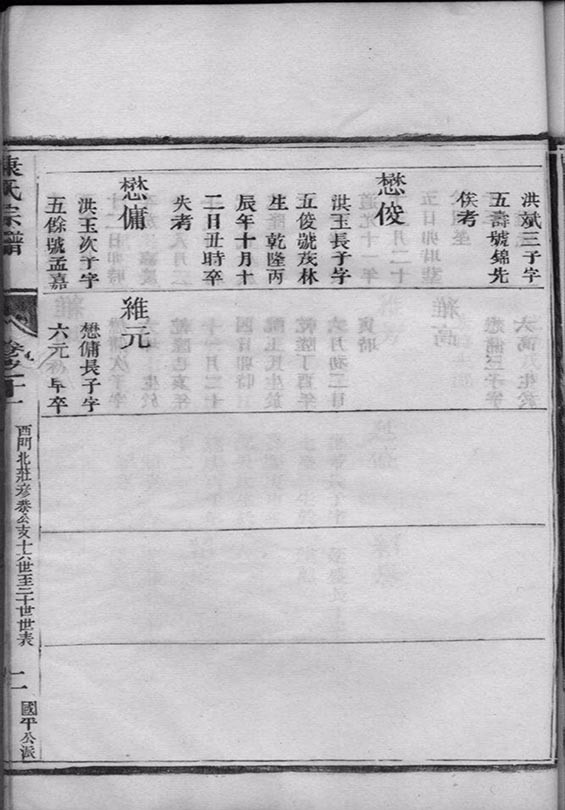 洪斌三子字
五壽號錦先
俟考
懋俊
洪玉長子字
五俊號茂林
生乾隆丙
辰年十月十
二日丑時卒
失考
懋傭
洪玉次子字
五餘號孟嘉
維元
懋傭長子字
六元早卒
氏宗譜
卷之十一
西門北莊彥泰公支十六世至二十世世表
二
國平公派